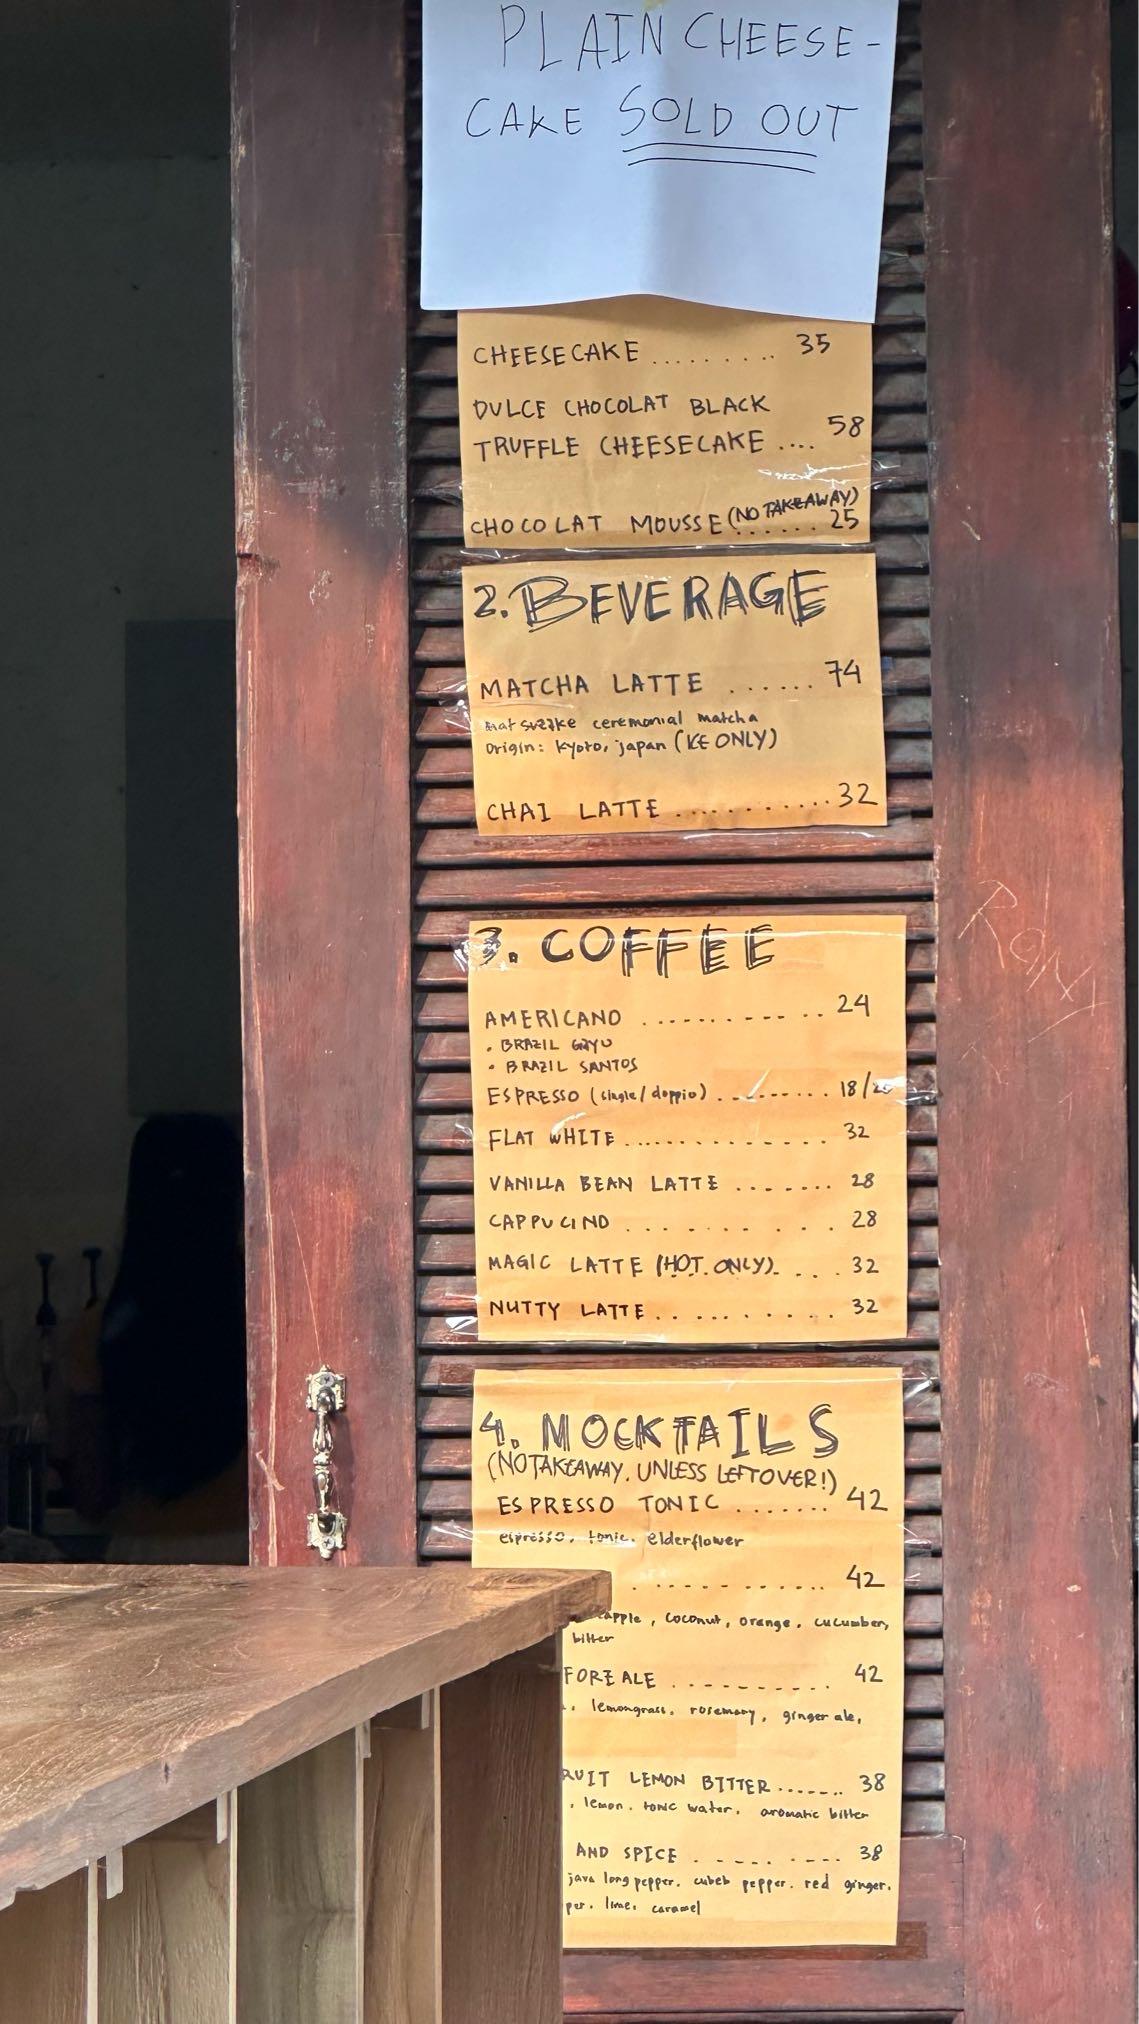 PLAIN CHEESE-
CAKE SOLD OUT
CHEESECAKE ......... 35
DULCE CHOCOLAT BLACK
TRUFFLE CHEESECAKE .... 58
CHOCOLAT MOUSSE (NO TAKEAWAY) ...... 25
2. BEVERAGE
MATCHA LATTE ...... 74
ceremonial matcha
Origin: kyoto, japan (ICE ONLY)
CHAI LATTE ........... 32
3. COFFEE
AMERICANO ............ 24
• BRAZIL
• BRAZIL SANTOS
ESPRESSO (single/doppio) ......... 18/
FLAT WHITE .............. 32
VANILLA BEAN LATTE ........ 28
CAPPUCINO ......... 28
MAGIC LATTE (HOT ONLY) .... 32
NUTTY LATTE ......... 32
4. MOCKTAILS
(NO TAKEAWAY. UNLESS LEFTOVER!)
ESPRESSO TONIC ....... 42
espresso, tonic, elderflower
............ 42
apple, coconut, orange, cucumber,
bitter
ALE .......... 42
lemongrass, rosemary, ginger ale,
RUIT LEMON BITTER ....... 38
, lemon, tonic water, aromatic bitter
AND SPICE ......... 38
java long pepper, cubeb pepper, red ginger,
per, lime, caramel